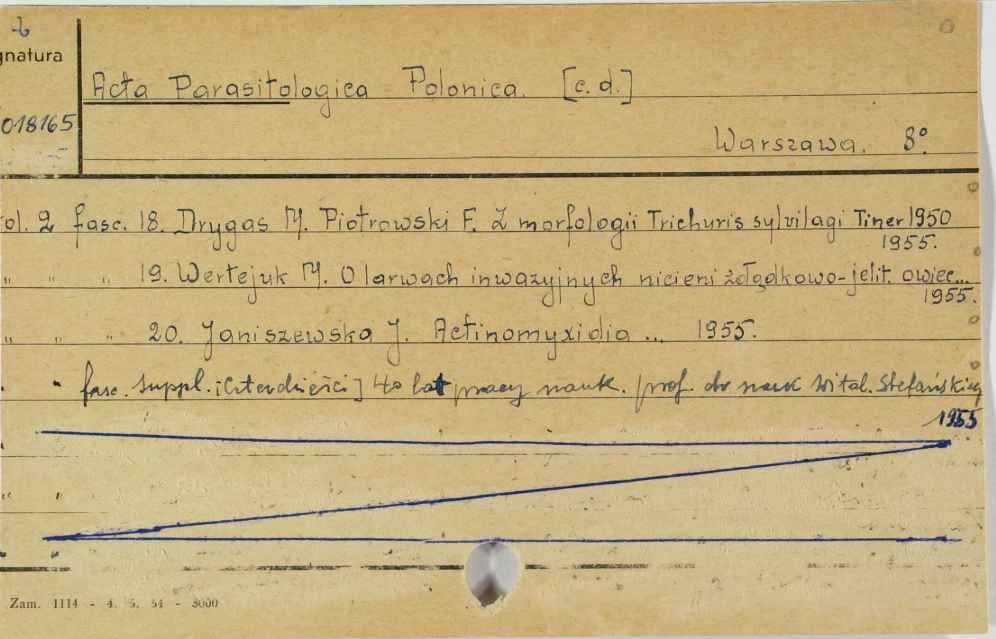 gnatura
018165
Acta Parasitologica Polonica. [c. d.]
Warszawa. 8°
ol. 2 fasc. 18. Drygas M. Piotrowski F. Z morfologii Trichuris sylvilagi Tiner 1950
1955.
„ „ „ 19. Wertejuk M. O larwach inwazyjnych nicieni żołądkowo-jelit. owiec...
1955.
„ „ „ 20. Janiszewska J. Actinomyxidia ... 1955.
fasc. suppl. [Czterdzieści] 40 lat pracy nauk. prof. dr nauk Wital. Stefański
1955
Zam. 1114 - 4. 5. 54 - 3000